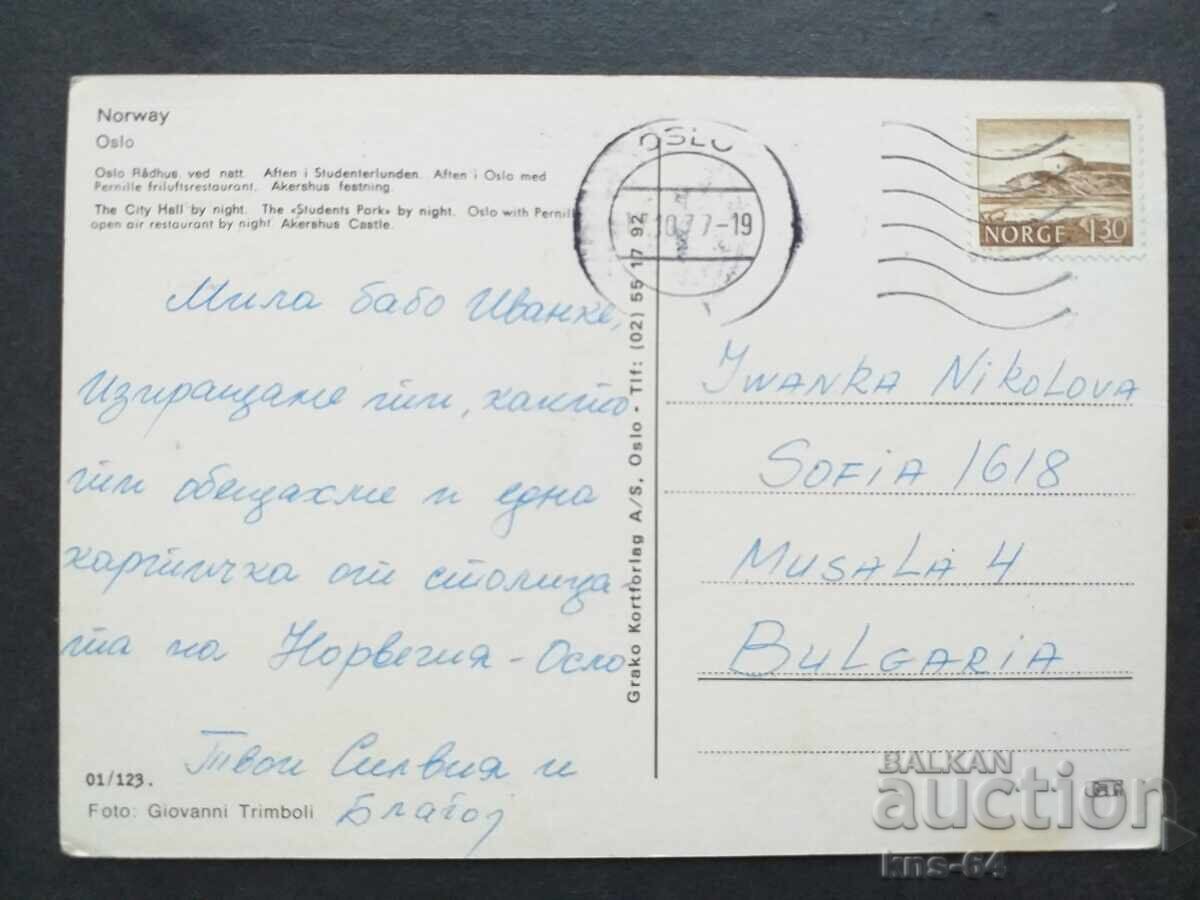 Norway
Oslo
Oslo Rådhus ved natt. Aften i Studenterlunden. Aften i Oslo med
Pernille friluftsrestaurant. Akershus festning.
The City Hall by night. The «Students Park» by night. Oslo with Pernille
open air restaurant by night. Akershus Castle.
Мила бабо Иванке,
Изпращаме ти, както
ти обещахме и една
картичка от столица
та на Норвегия - Осло
Твои Силвия и
Благој
01/123.
Foto: Giovanni Trimboli
Grako Kortforlag A/S, Oslo - Tlf: (02) 55 17 92
OSLO
10 77-19
NORGE 130
Iwanka Nikolova
Sofia 1618
Musala 4
Bulgaria
BALKAN
auction
kns-64